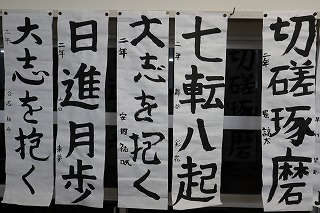 切磋琢磨
二年
七転八起
二年
大志を抱く
二年
日進月歩
二年
大志を抱く
二年